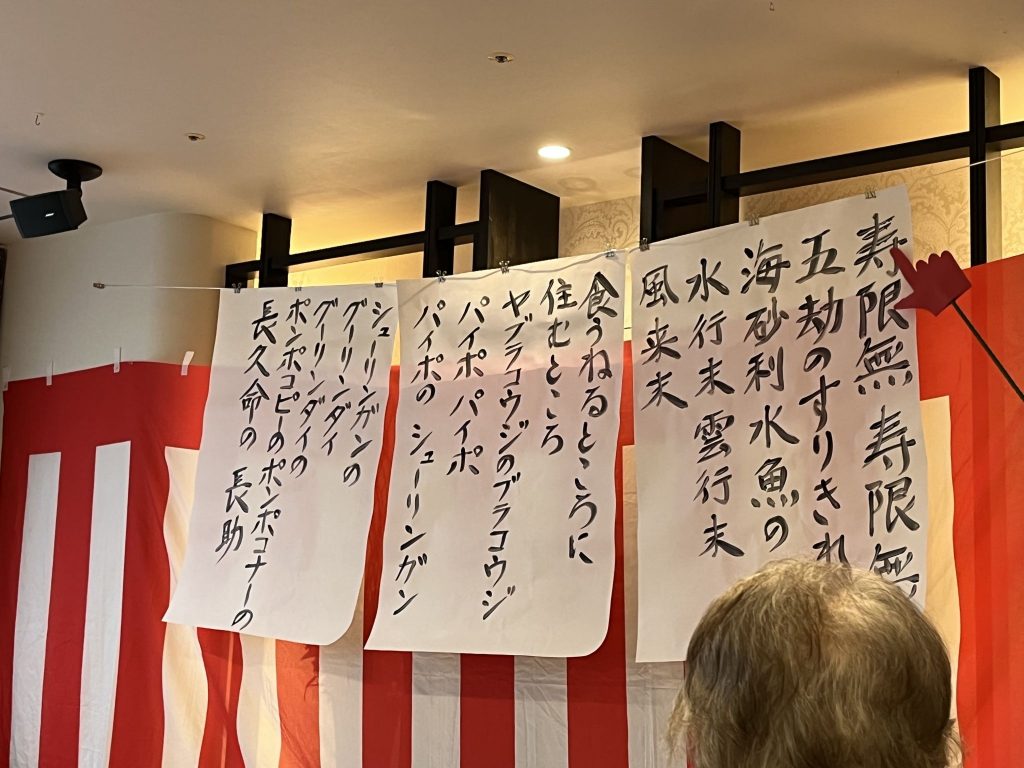 寿限無 寿限無
五劫のすりきれ
海砂利水魚の
水行末雲行末
風来末
食うねるところに
住むところ
ヤブラコウジのブラコウジ
パイポ パイポ
パイポの シューリンガン
シューリンガンの
グーリンダイ
グーリンダイの
ポンポコピーのポンポコナーの
長久命の 長助